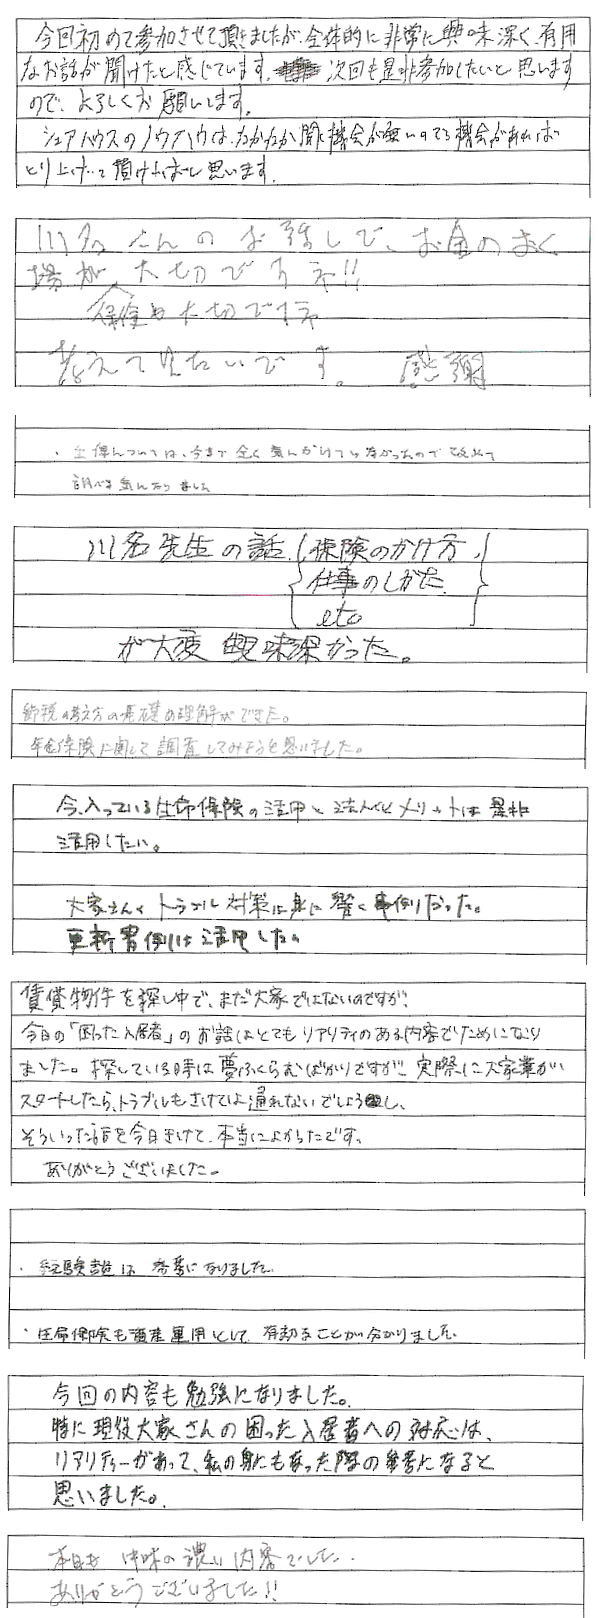 今回初めて参加させて頂きましたが、全体的に非常に興味深く、有用
なお話が聞けたと感じています。次回も是非参加したいと思います
ので、よろしくお願いします。
シェアハウスのノウハウは、なかなか聞く機会が無いので機会があれば
とり上げて頂ければと思います。
川名さんのお話しで、お金のおく
場が、大切ですネ!!
保険も大切ですネ
考えて見たいです。 感謝
・生保については、今まで全く気にかけていなかったので改めて
調べる気になりました
川名先生の話、(保険のかけ方、
仕事のしかた、
etc
が大変興味深かった。
節税の考え方の基礎の理解ができた。
年金保険に関して調査してみようと思いました。
今、入っている生命保険の活用と法人化メリットは是非
活用したい。
大家さんトラブル対策は身に響く事例だった。
更新書例は活用したい
賃貸物件を探し中で、まだ大家ではないのですが、
今日の「困った入居者」のお話はとてもリアリティのある内容でためになり
ました。探している時は夢ふくらむばかりですが、実際に大家業が
スタートしたら、トラブルもさけては通れないでしょうし、
そういった話を今日きけて、本当によかったです。
ありがとうございました。
・経験談は参考になりました。
・生命保険も資産運用として有効なことが分かりました。
今回の内容も勉強になりました。
特に現役大家さんの困った入居者への対応は、
リアリティーがあって、私の身にもあった際の参考になると
思いました。
本日も中味の濃い内容でした。
ありがとうございました!!